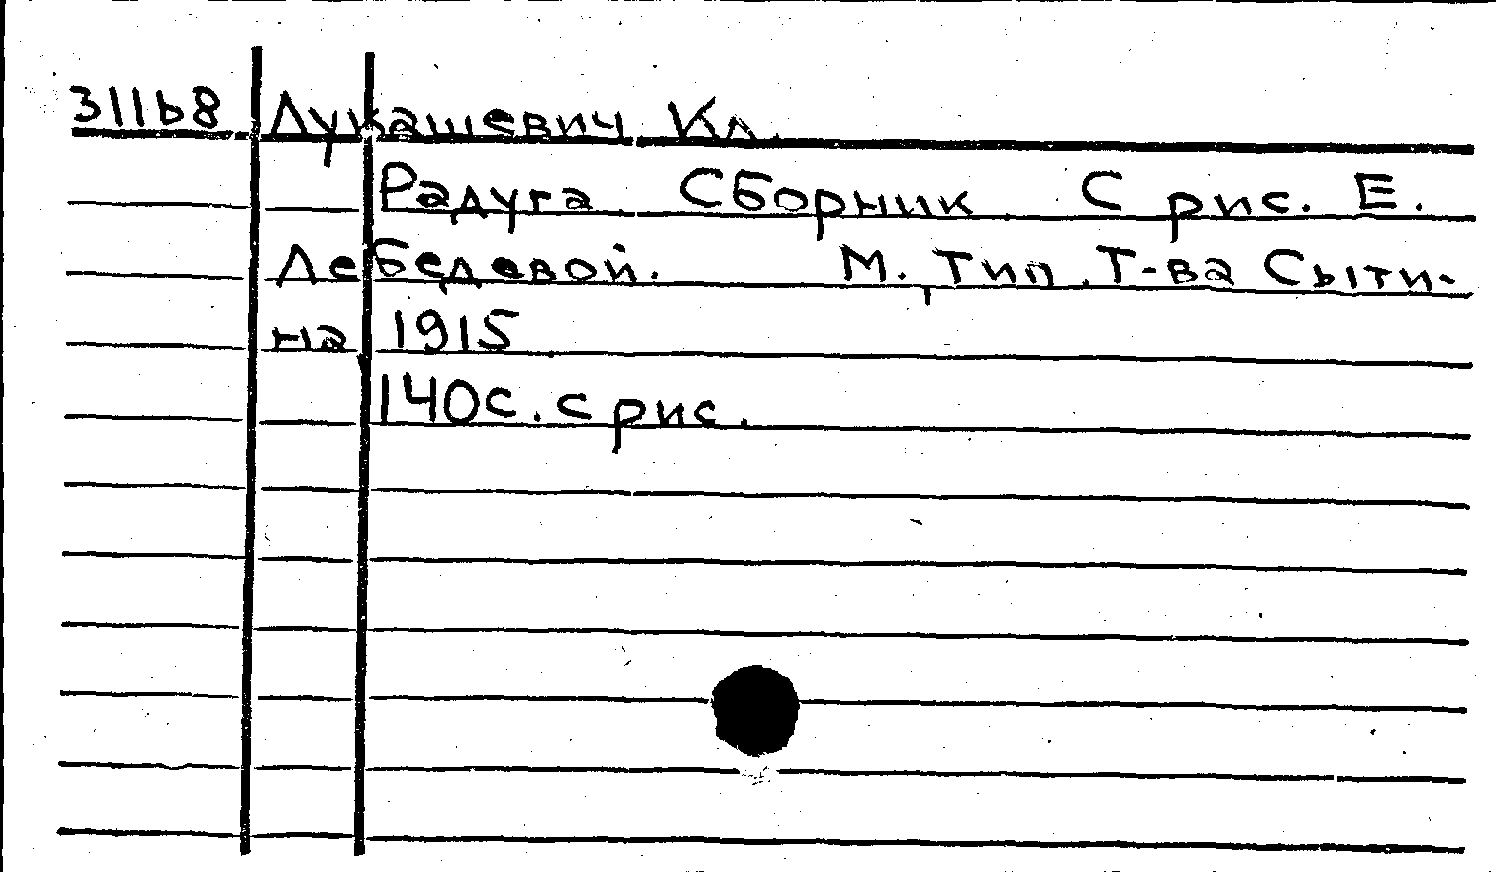 311b8 Лукашевич Кл.
Радуга. Сборник. С рис. Е.
Лебедевой. М., Тип. Т-ва Сыти-
на 1915
140с. с рис.